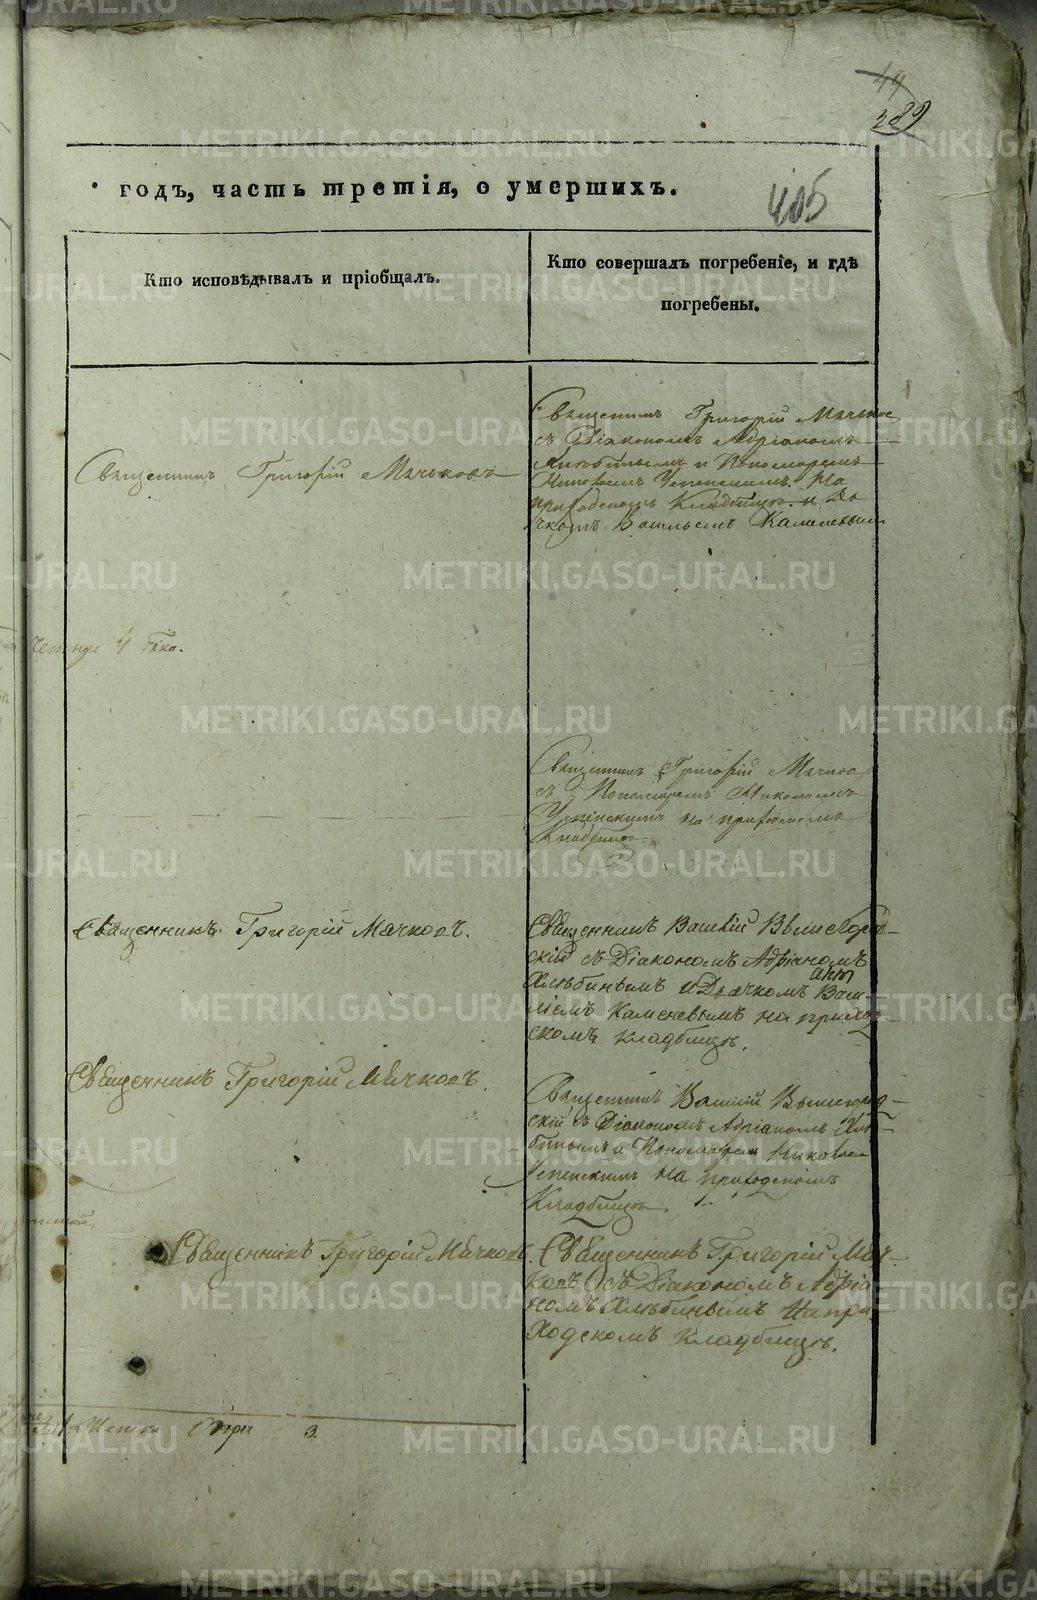 49
289
годъ, часть третія, о умершихъ.
405
Кто исповѣдывалъ и пріобщалъ.
Кто совершалъ погребеніе, и гдѣ
погребены.
Священникъ Григорій Мячков
съ Діакономъ Адріаномъ
Хлѣбинымъ и Пономаремъ
Успенскимъ на
приходскомъ Кладбищѣ и Дя
чкомъ Васильемъ Каменевым
Священникъ Григорій Мячковъ
4
Священникъ Григорій
съ Пономаремъ Николаемъ
Успенскимъ на приходскомъ
Кладбищѣ
Священникъ Григорій Мячковъ.
Священникъ Василій Вышегород-
скій съ Діакономъ Адріаномъ
Хлѣбинымъ и Дьячкомъ Васи-
ліемъ Каменевымъ на приход-
скомъ кладбищѣ.
Священникъ Григорій Мячковъ.
Священникъ Василій Вышегород-
скій съ Діакономъ Адріаномъ Хлѣ-
бинымъ и Пономаремъ Николаем
Успенскимъ на приходскомъ
Кладбищѣ.
Священникъ Григорій Мячковъ.
Священникъ Григорій Мяч-
ковъ съ Діакономъ Адріа
номъ Хлѣбинымъ на при
ходскомъ кладбищѣ.
3.
METRIKI.GASO-URAL.RU